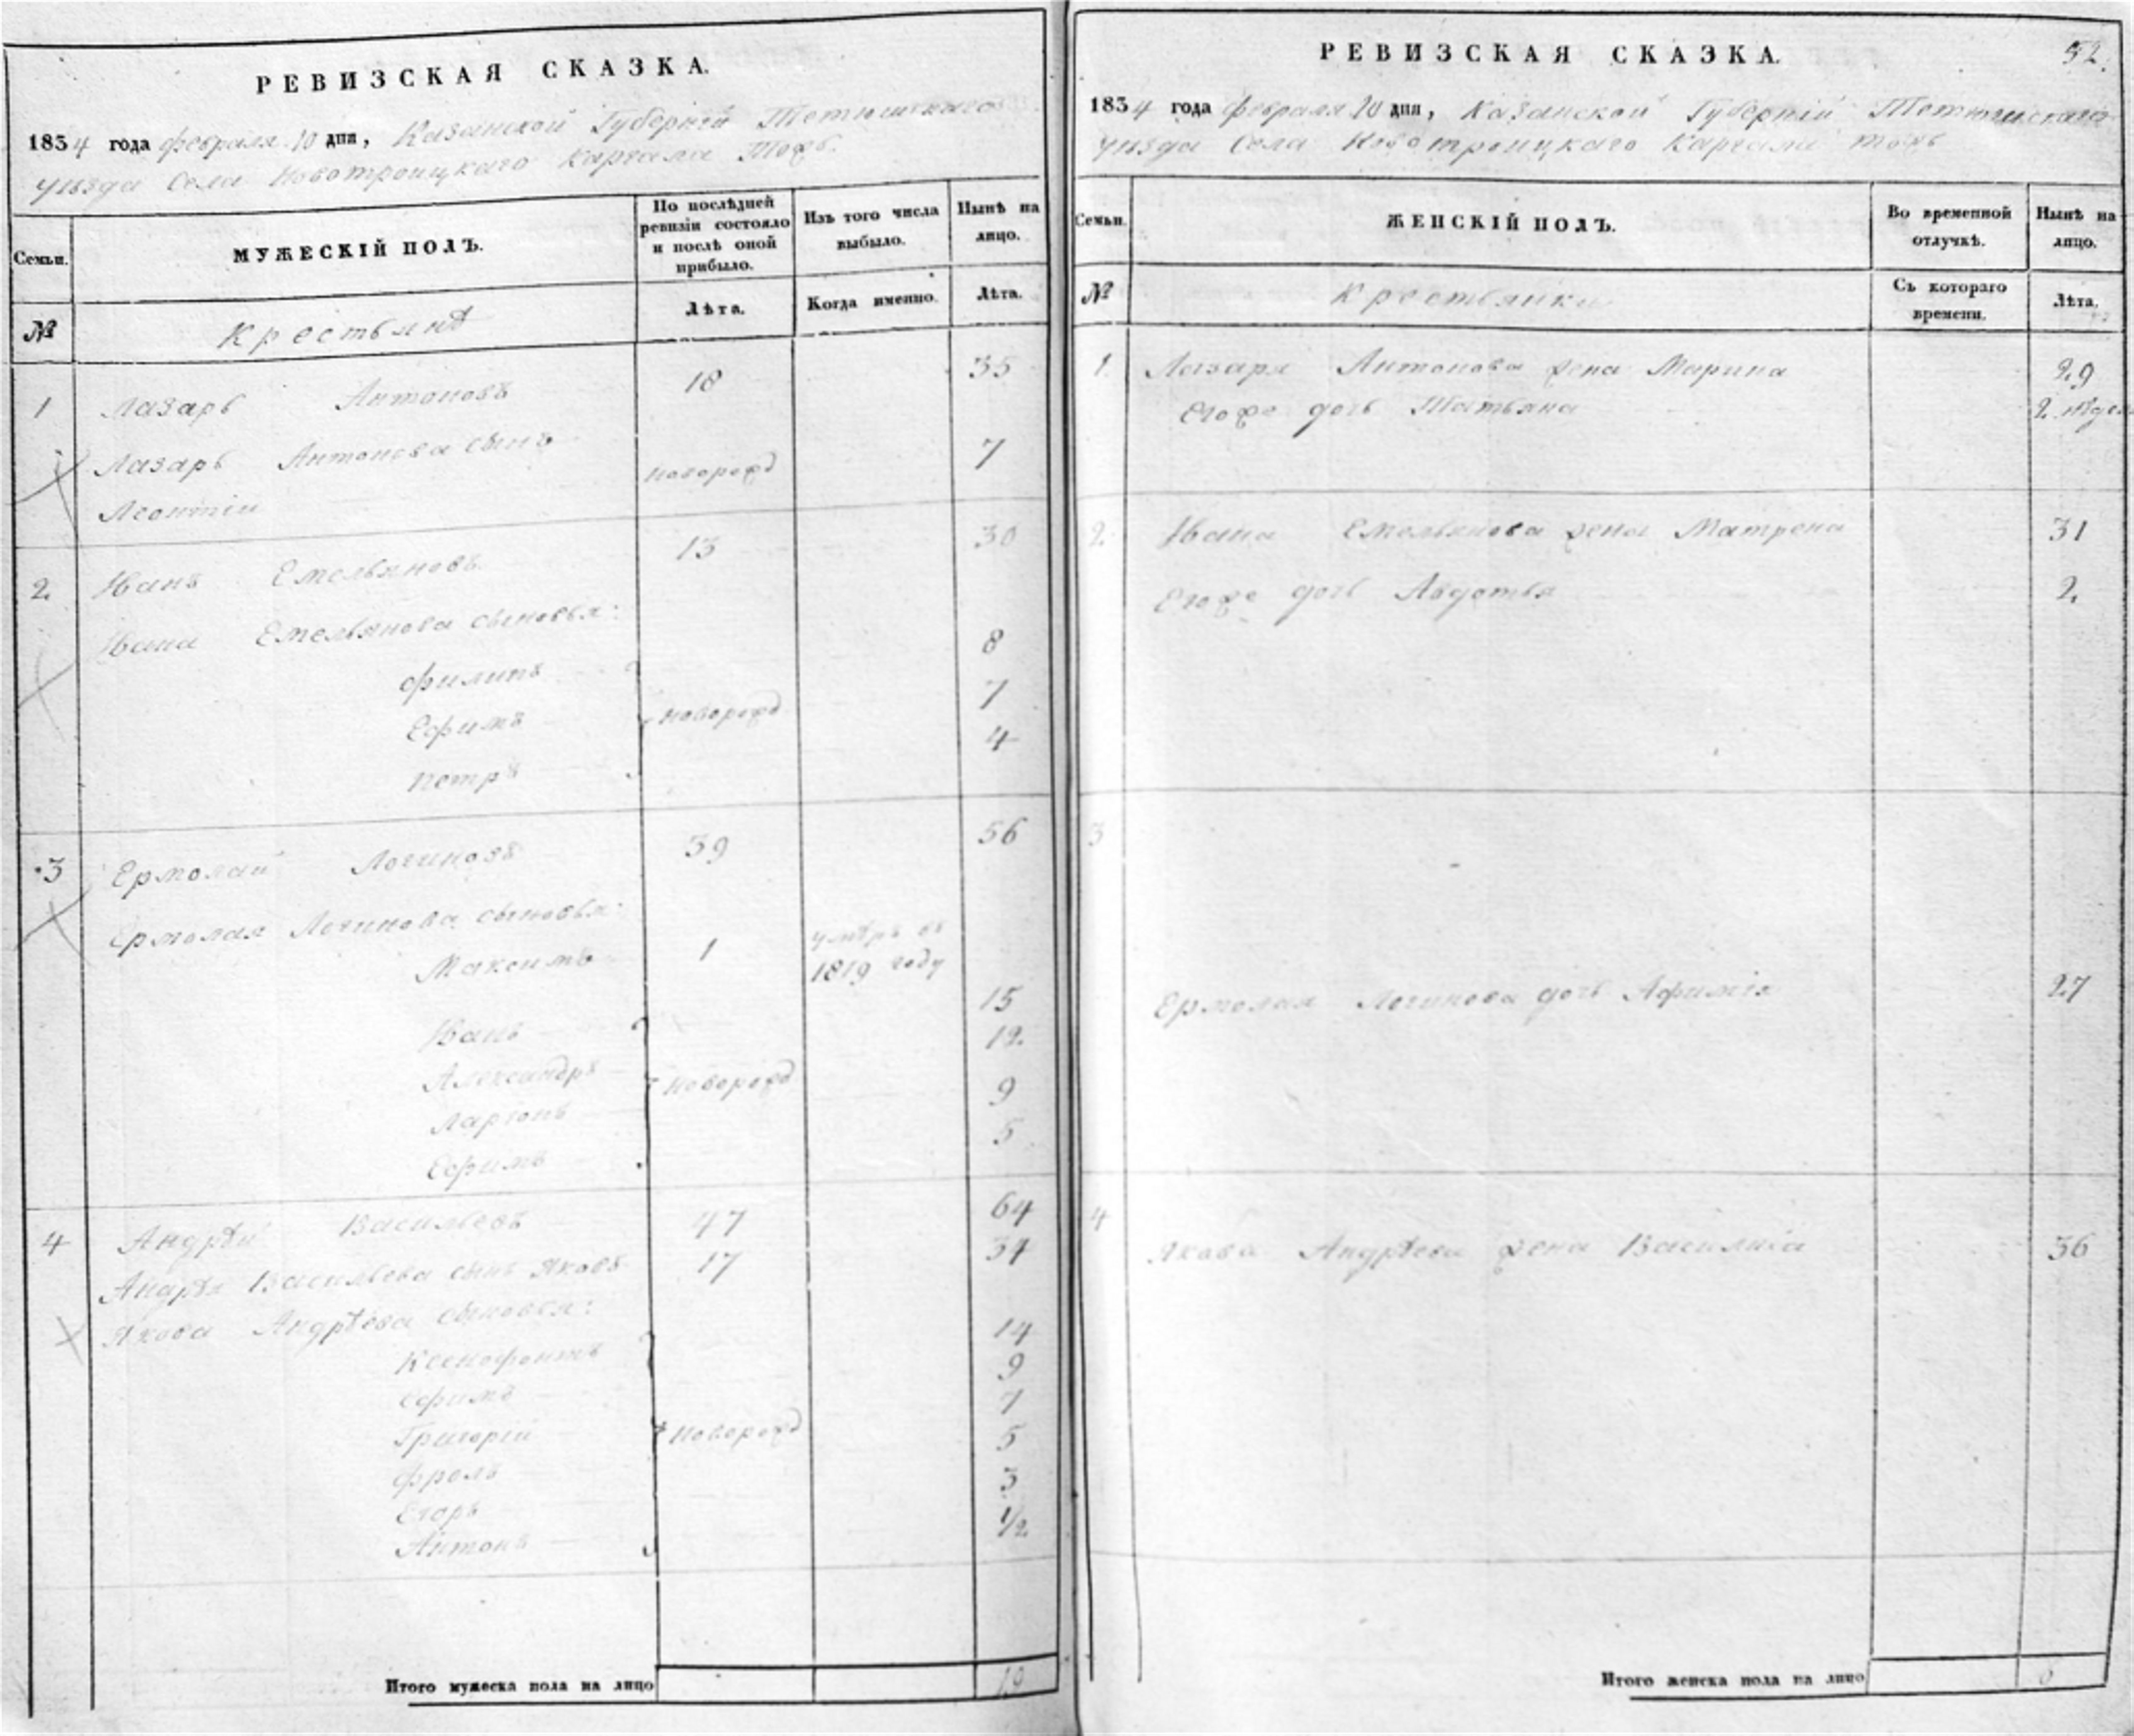 РЕВИЗСКАЯ СКАЗКА.
1834 года февраля 20 дня, Казанской Губерніи Тетюшскаго
уезда Села Новотроицкаго Каргала тожъ.
Семьи.
МУЖЕСКІЙ ПОЛЪ.
По послѣдней ревизіи состояло и послѣ оной прибыло.
Изъ того числа выбыло.
Нынѣ на лицо.
№
Крестьянѣ
Лѣта.
Когда именно.
Лѣта.
1 Лазарь Антоновъ 18 35
Лазарь Антонова сынъ
Леонтіи новорожд 7
2. Иванъ Емельяновъ 13 30
Ивана Емельянова сыновья:
Филипъ 8
Ефимъ новорожд 7
Петръ 4
3 Ермолай Логиновъ 39 56
Ермолая Логинова сыновья:
Максимъ 1 умѣръ въ 1819 году
Иванъ 15
Александръ новорожд 12.
Ларіонъ 9
Ефимъ 5
4 Андрѣй Васильевъ 47 64
Андрѣя Васильева сынъ Яковъ 17 34
Якова Андрѣева сыновья:
Ксенофонтъ 14
Ефимъ 9
Григорій новорожд 7
Фролъ 5
Егоръ 3
Антонъ 1/2
Итого мужеска пола на лицо 19
РЕВИЗСКАЯ СКАЗКА.
52.
1834 года февраля 20 дня, Казанской Губерніи Тетюшскаго
уезда Села Новотроицкаго Каргала тожъ
Семьи.
ЖЕНСКІЙ ПОЛЪ.
Во временной отлучкѣ.
Нынѣ на лицо.
№
Крестьянки
Съ котораго времени.
Лѣта.
1. Лазаря Антонова жена Марина 29
Егоже дочь Татьяна 2 недел
2. Ивана Емельянова жена Матрена 31
Егоже дочь Авдотья 2.
3
Ермолая Логинова дочь Афимія 27
4
Якова Андрѣева жена Василиса 36
Итого женска пола на лицо